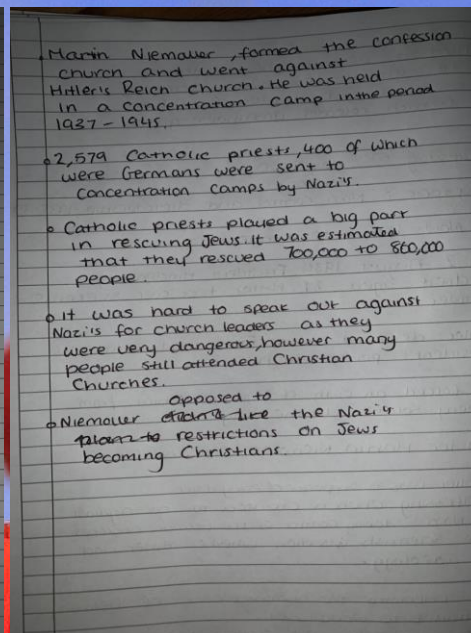 Martin Niemaller, formed the confession
church and went against
Hitler's Reich church. He was held
in a concentration camp in the period
1937 - 1945.
• 2,579 Catholic priests, 400 of which
were Germans were sent to
concentration camps by Nazi's.
• Catholic priests played a big part
in rescuing Jews. It was estimated
that they rescued 700,000 to 860,000
people.
• It was hard to speak out against
Nazi's for church leaders as they
were very dangerous, however many
people still attended Christian
Churches.
opposed to
• Niemoller didn't like the Nazi's
plan to restrictions on Jews
becoming Christians.